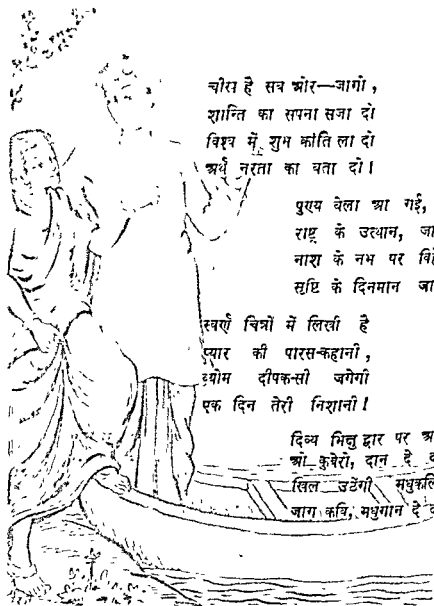 चीख है सब ओर—जागो,
शान्ति का सपना सजा दो
विश्व में शुभ क्रांति ला दो
अर्थ नरता का बता दो।
पुण्य वेला आ गई,
राष्ट्र के उत्थान, जा
नाश के नभ पर
सृष्टि के दिनमान जा
स्वर्ण चित्रों में लिखी है
प्यार की पारस-कहानी,
व्योम दीपक-सी जगेगी
एक दिन तेरी निशानी!
दिव्य भिक्षु द्वार पर
ओ कुबेरो, दान दे
खिल उठेंगी
जाग कवि, मधुगान दे